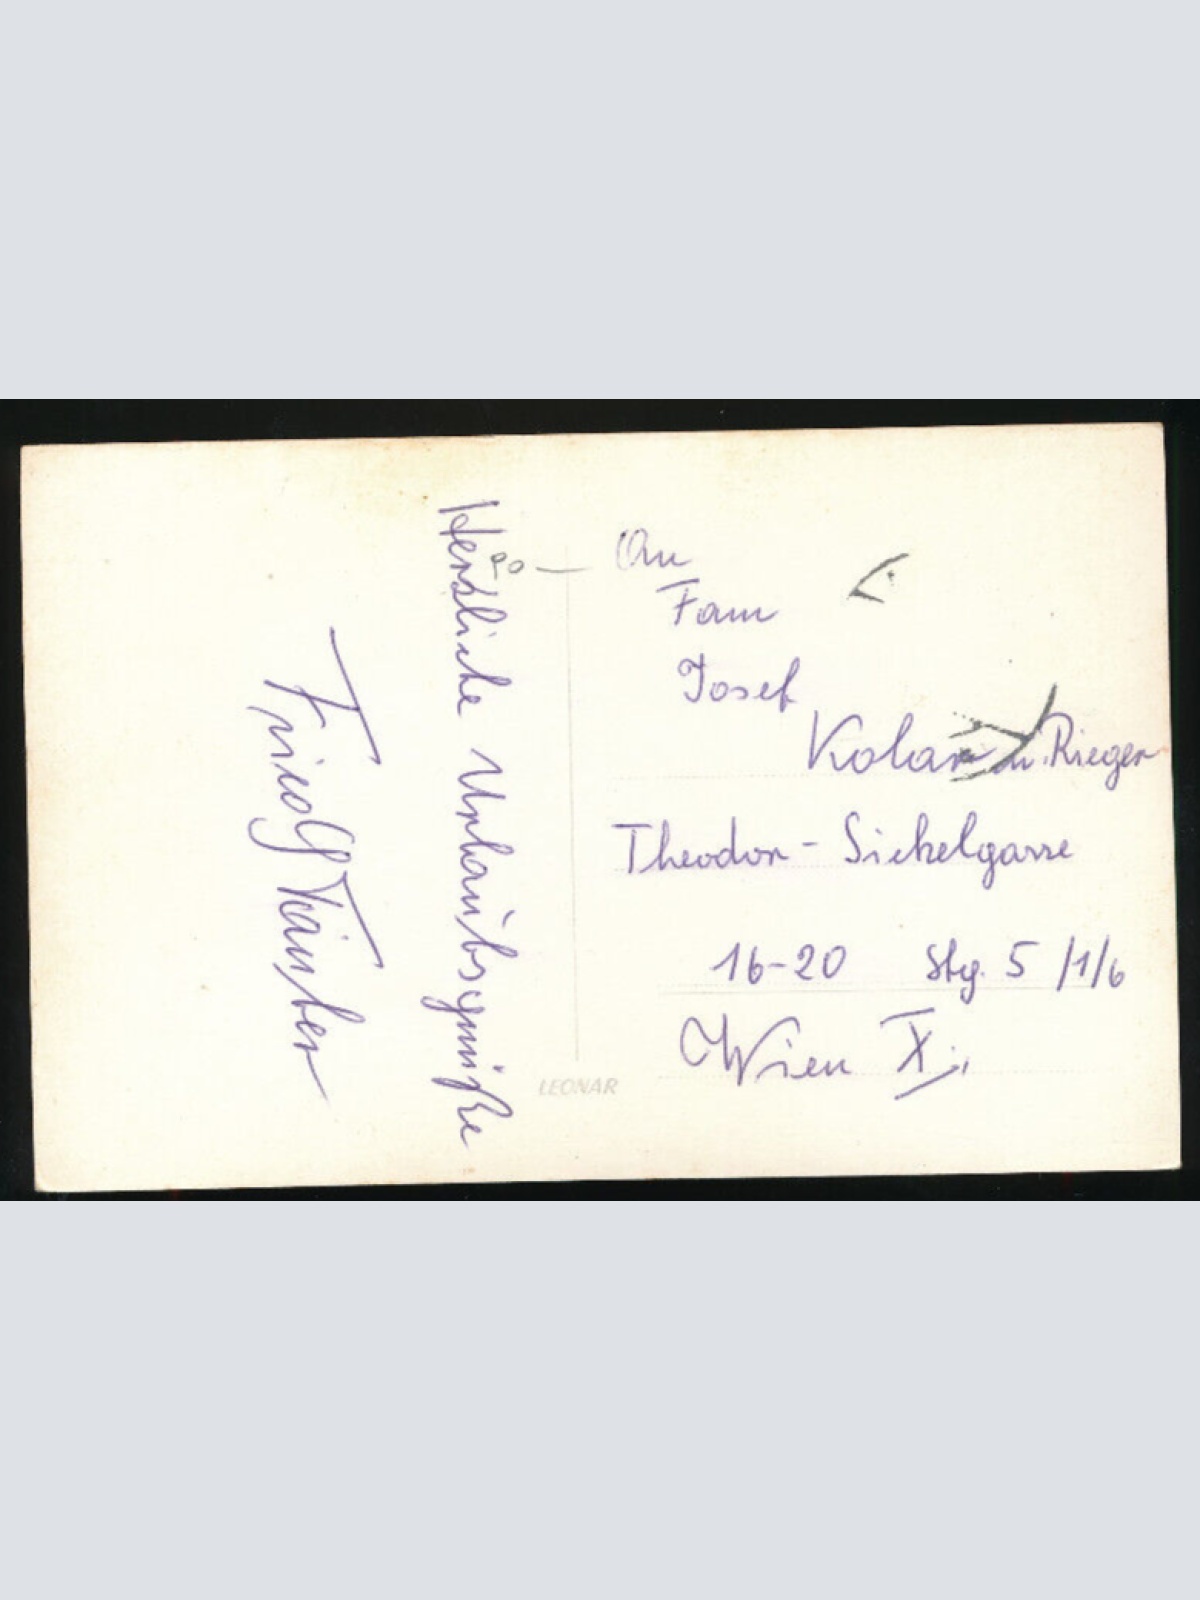 Herzliche Urlaubsgrüße
Fam
Josef
Kolar u. Rieger
Theodor-Sickelgasse
16-20 Stg. 5 /1/6
Wien X.
An
LEONAR